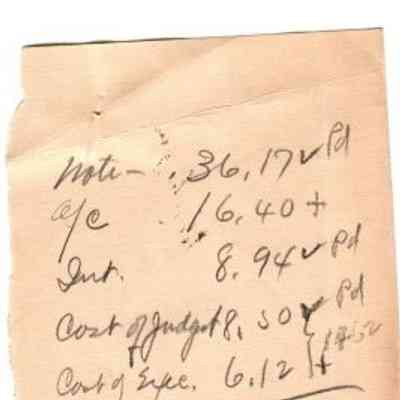 Note – 36.17 ✓ Pd
a/c 16.40 +
Int. 8.94 ✓ Pd
Cost of Judgt 8.50 ✓ Pd
Cost of Exec. 6.12 +